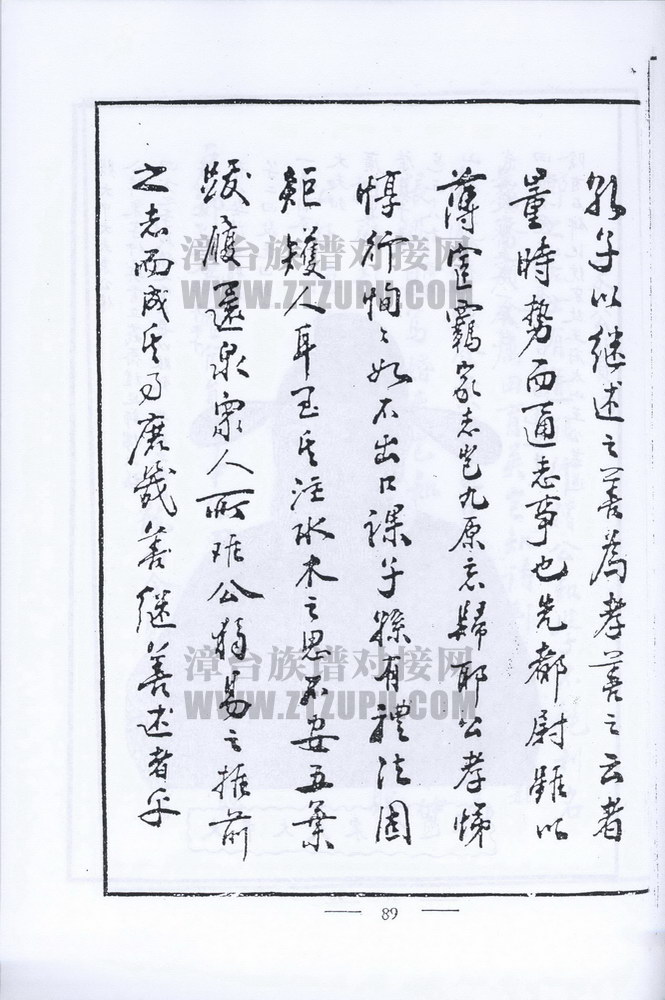 孔子以继述之善為孝善之云者
量時势而通志事也先都尉雖以
薄宦羁家志岂九原忘歸耶公孝悌
惇行恂〻如不出口課子孫有禮法固
矩矱人耳至其注水木之思不安五葉
跋履還泉宗人所难公獨易之推前
之志而成其事庶幾善继善述者乎
漳台族谱对接网
WWW.ZTZUPU.COM
漳台族谱对接网
WWW.ZTZUPU.COM
— 89 —